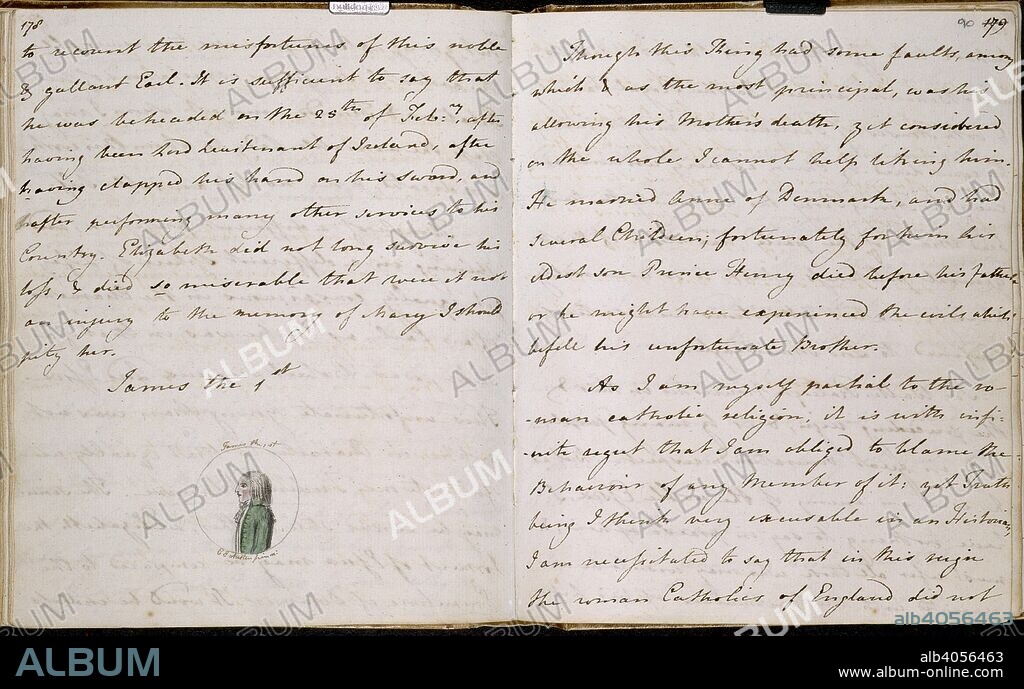 178
to recount the misfortunes of this noble
& gallant Earl. It is sufficient to say that
he was beheaded on the 25th of Feb:ry, after
having been Lord Leuitenant of Ireland, after
having clapped his hand on his sword, and
after performing many other services to his
Country. Elizabeth did not long survive his
loss, & died so miserable that were it not
an injury to the memory of Mary I should
pity her.
James the 1st
James the 1st
C E Austen pinx
90 179
Though this King had some faults, among
which & as the most principal, was his
allowing his Mother's death, yet considered
on the whole I cannot help liking him.
He married Anne of Denmark, and had
several Children; fortunately for him his
eldest son Prince Henry died before his father
or he might have experienced the evils which
befell his unfortunate Brother.
As I am myself partial to the ro-
-man catholic religion, it is with infi-
-nite regret that I am obliged to blame the
Behaviour of any Member of it: yet Truth
being I think very excusable in an Historian,
I am necessitated to say that in this reign
the roman Catholics of England did not
alb4056463
ALBUM
alb4056463
www.album-online.com